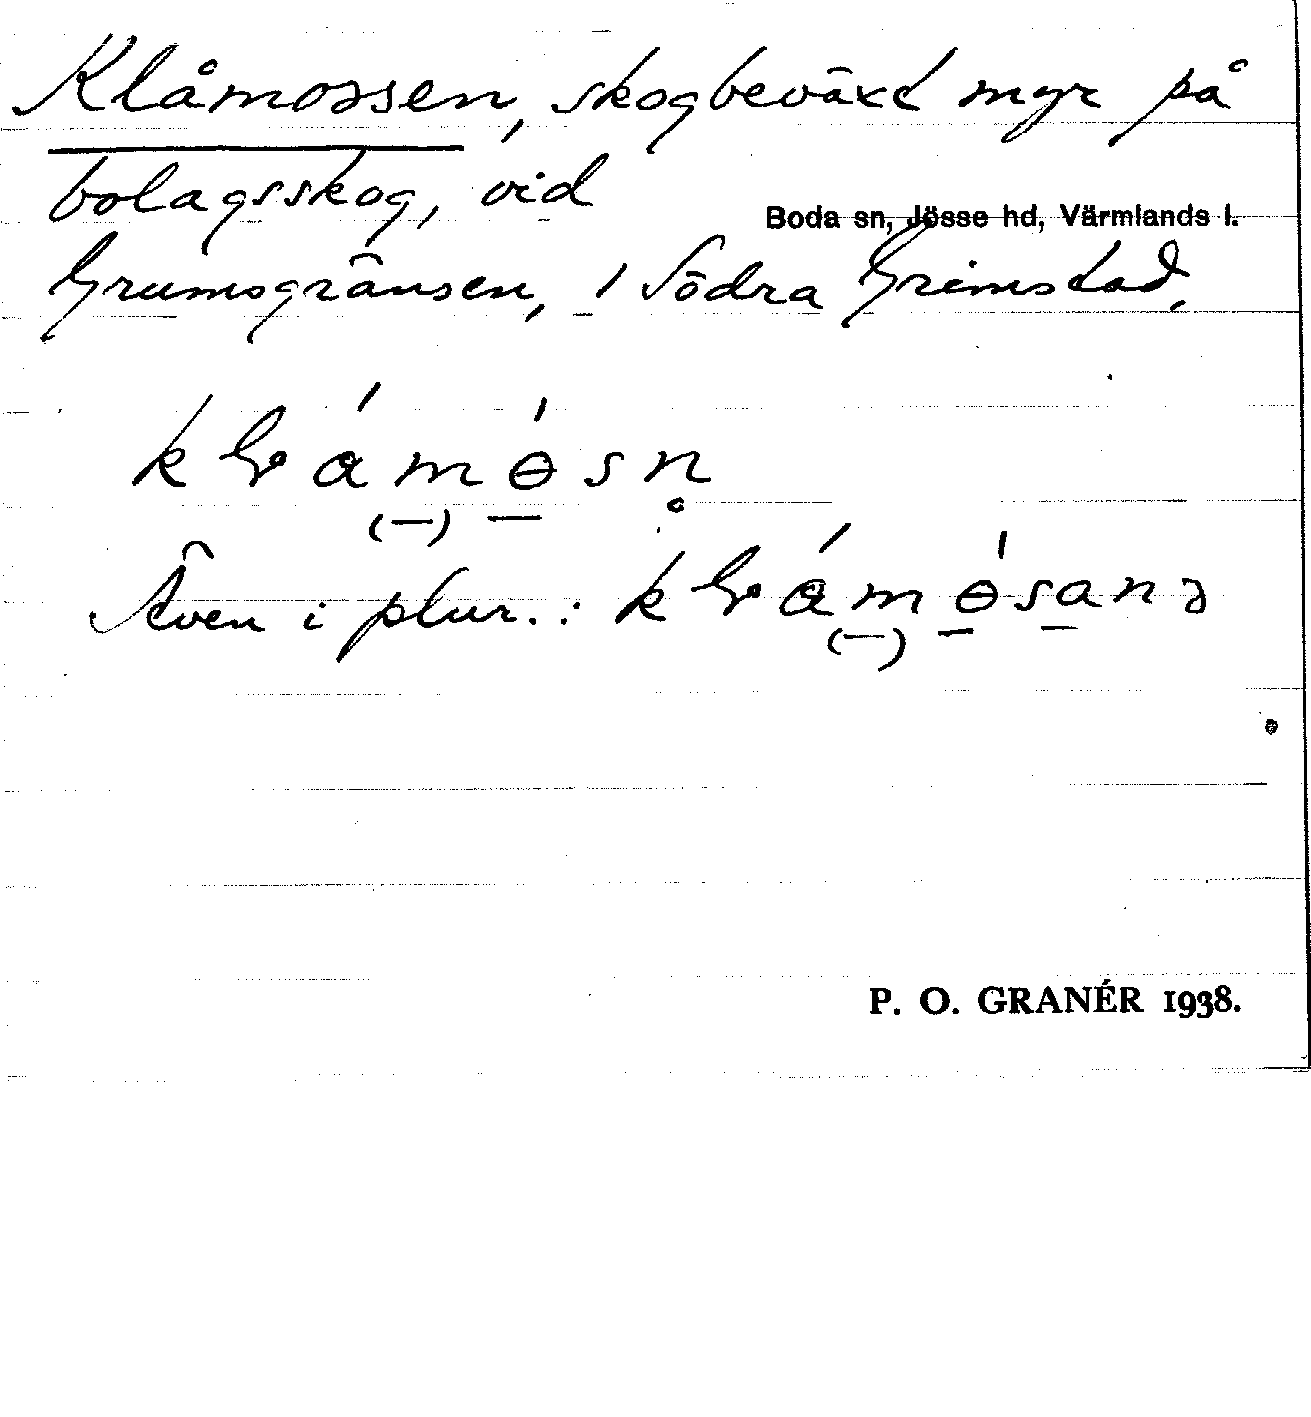 Klåmossen, skogbeväxt myr på
bolagsskog, vid
Boda sn, Jösse hd, Värmlands l.
Grumsgränsen, i Södra Grimstad.
Även i plur.:
P. O. GRANÉR 1938.